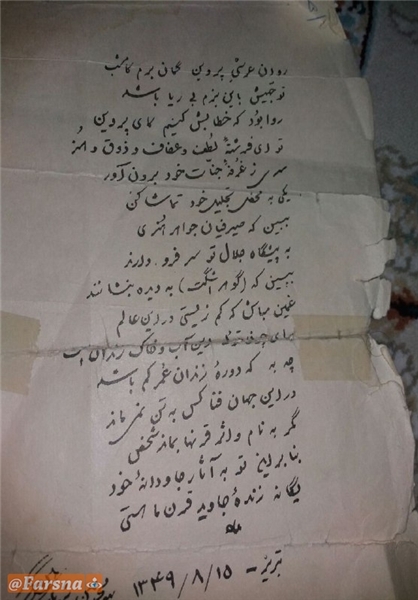 روان عرشی پروین گمان برم کامشب
توجهش باین بزم بی ریا باشد
روا بود که خطابش کنیم کای پروین
تو ای فرشتهٔ لطف و عفاف و ذوق و هنر
سری ز غرفهٔ جنات خود برون آور
یکی به محفل تجلیل خود تماشا کن
ببین که صیرفیان جواهر هنری
به پیشگاه جلال تو سر فرود آرند
ببین که (گوهر اشکت) به دیده بنشانند
غمین مباش که کم زیستی در این عالم
برای چون تویی این آب و خاک زندان است
چه به که دورهٔ زندان عمر کم باشد
در این جهان فنا کس به تن نمی ماند
مگر به نام و اثر قرنها بماند شخص
بنا براین تو به آثار جاودانهٔ خود
یگانه زندهٔ جاوید قرن ما هستی
تبریز - ۱۳۴۹/۸/۱۵
@Farsna